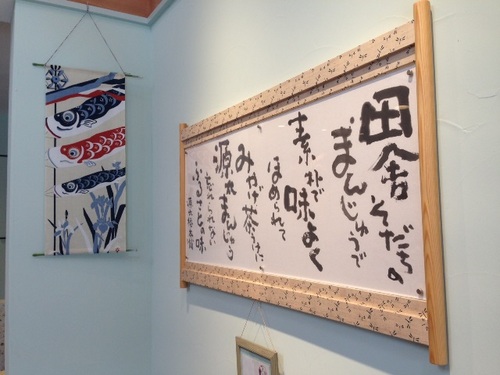 田舎そだちの
まんじゅうで
素朴で味よく
ほめられて
みやげ茶うけに
まんじゅう
忘れられない
ふるさとの味